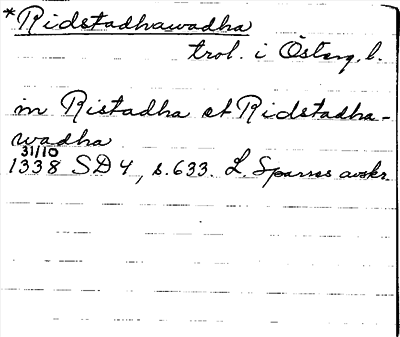 *Ridstadhawadha
trol. i Österg. l.
in Ristadha et Ridstadha-
wadha
31/10
1338 SD 4, s. 633. L. Sparres avskr.